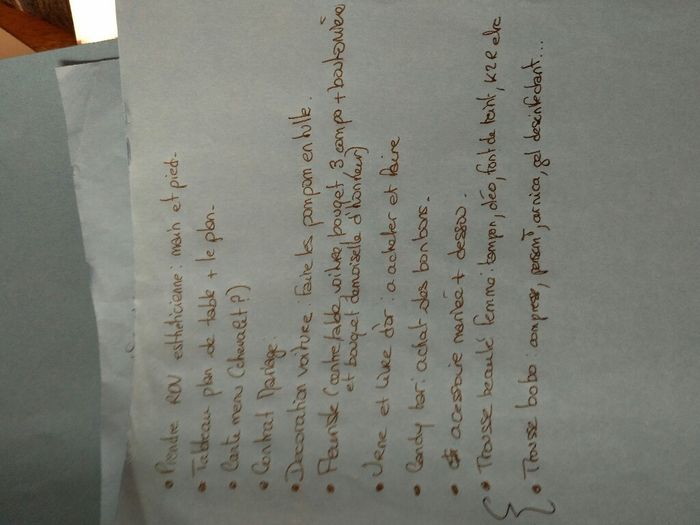 • Prendre RDV esthéticienne : main et pied.
• Tableau plan de table + le plan.
• Carte menu (chevalet ?)
• Contrat Mariage.
• Decoration voiture : faire les pompom en tulle.
• Fleuriste (centre table, voiture, bouquet 3 compo + boutonnière
et bouquet demoiselle d'honneur)
• Urne et livre d'or : a acheter et faire
• Candy bar : achat des bonbons.
• acessoire mariée + dessous.
• Trousse beauté femme : tampon, déo, font de teint, K2R etc
• Trousse bobo : compresse, pansmt, arnica, gel desinfectant...